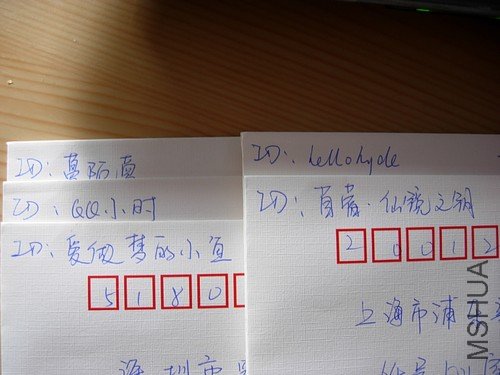 ID: 莫陌页
ID: QQ小时
ID: 爱做梦的小鱼
5180
深圳市
ID: hellohyde
ID: 仙镜之翎
20012
上海市浦
MSHUA